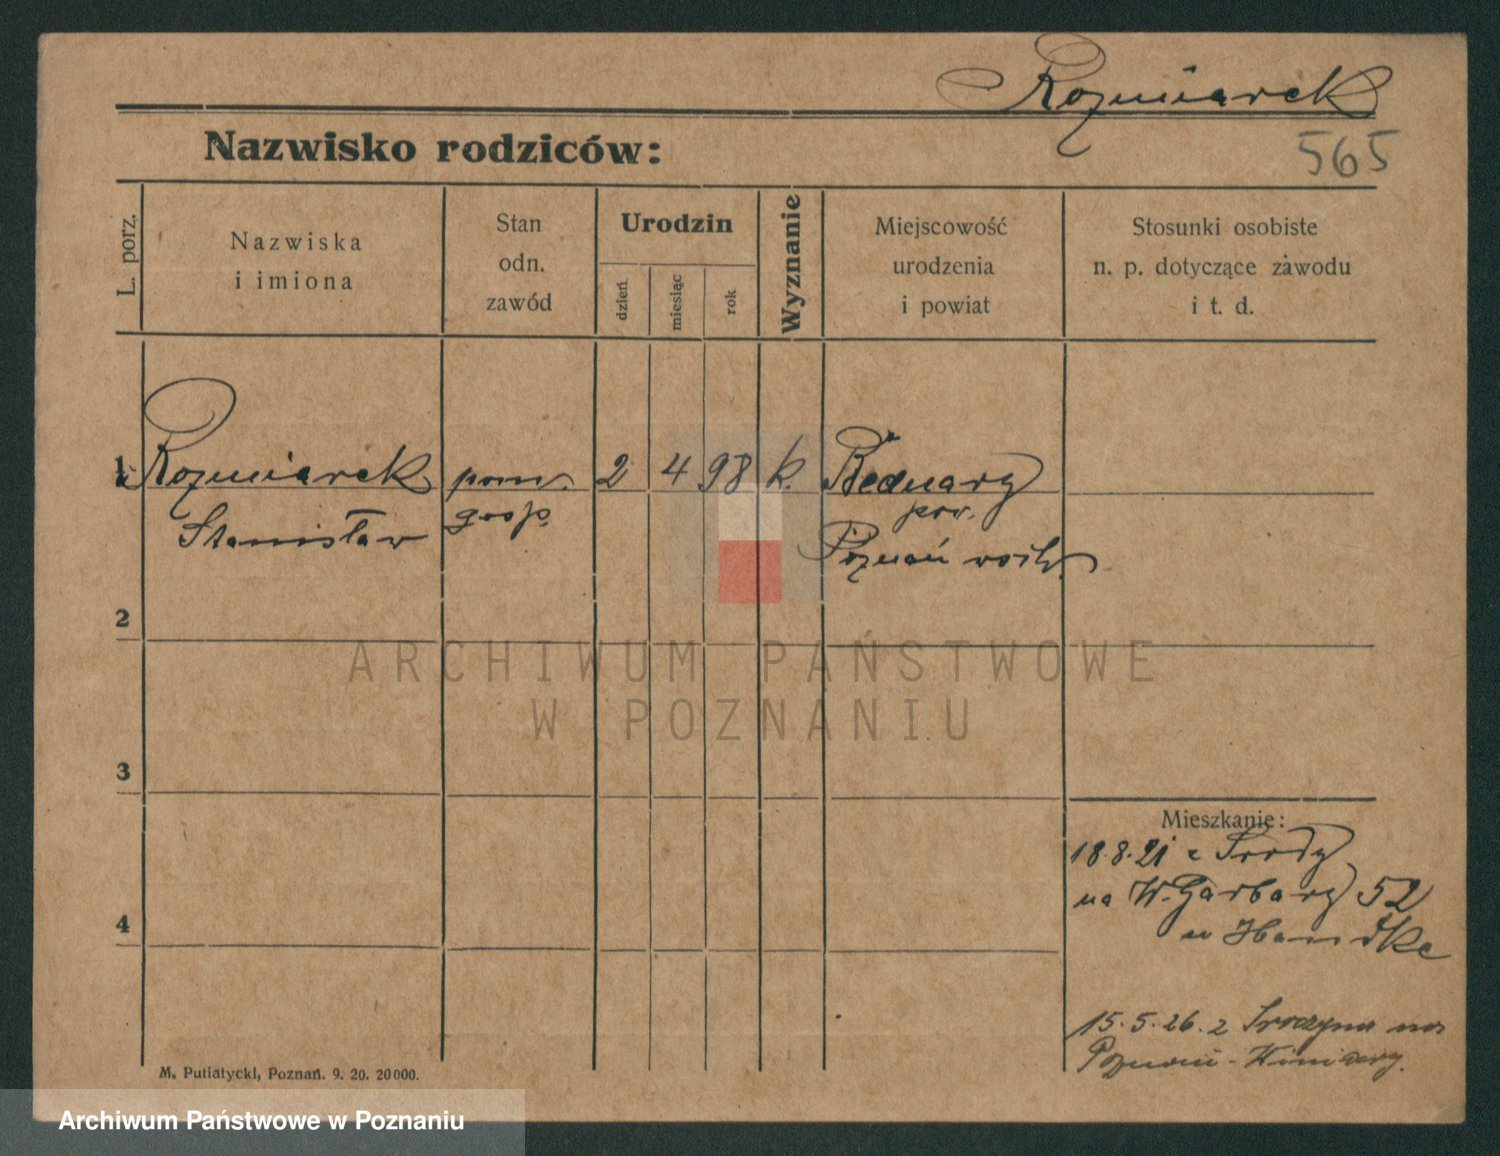 Rozmiarek
Nazwisko rodziców:
565
L. porz.
Nazwiska
i imiona
Stan
odn.
zawód
Urodzin
dzień
miesiąc
rok
Wyznanie
Miejscowość
urodzenia
i powiat
Stosunki osobiste
n. p. dotyczące zawodu
i t. d.
1 Rozmiarek
Stanisław
pom.
gosp.
2 4 98 k.
Bednary
pow.
Poznań wsch.
2
3
4
Mieszkanie:
18.8.21 z Środy
na W. Garbary 52
u
15.5.26. z na
Poznań - Winiary.
M. Putiatycki, Poznań. 9. 20. 20000.
ARCHIWUM PAŃSTWOWE
W POZNANIU
Archiwum Państwowe w Poznaniu